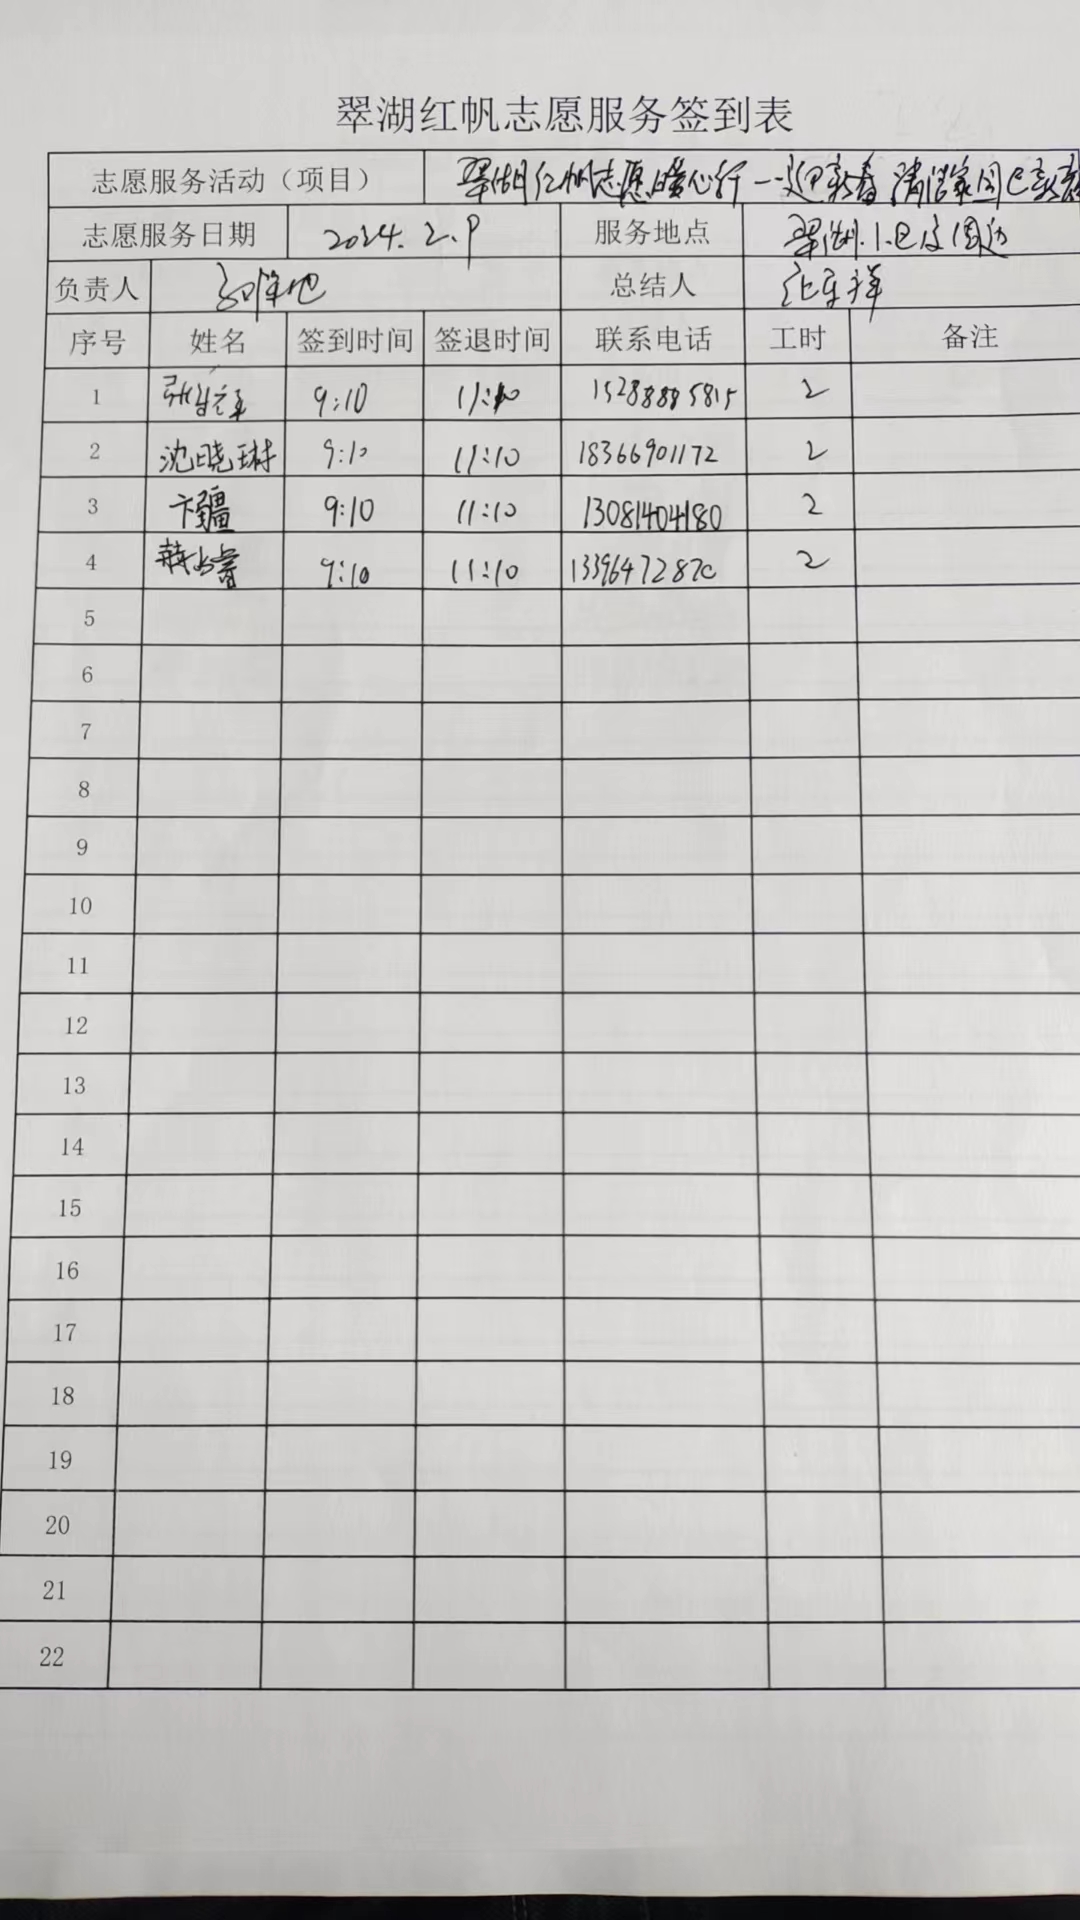 翠湖红帆志愿服务签到表
志愿服务活动（项目） 翠湖红帆志愿暖心行——迎新春 清洁家园
志愿服务日期 2024.2.9 服务地点 翠湖小区及周边
负责人 总结人
序号 姓名 签到时间 签退时间 联系电话 工时 备注
1 9:10 11:10 15288885815 2
2 沈晓琳 9:10 11:10 18366901172 2
3 卞疆 9:10 11:10 13081404180 2
4 9:10 11:10 13396472870 2
5
6
7
8
9
10
11
12
13
14
15
16
17
18
19
20
21
22